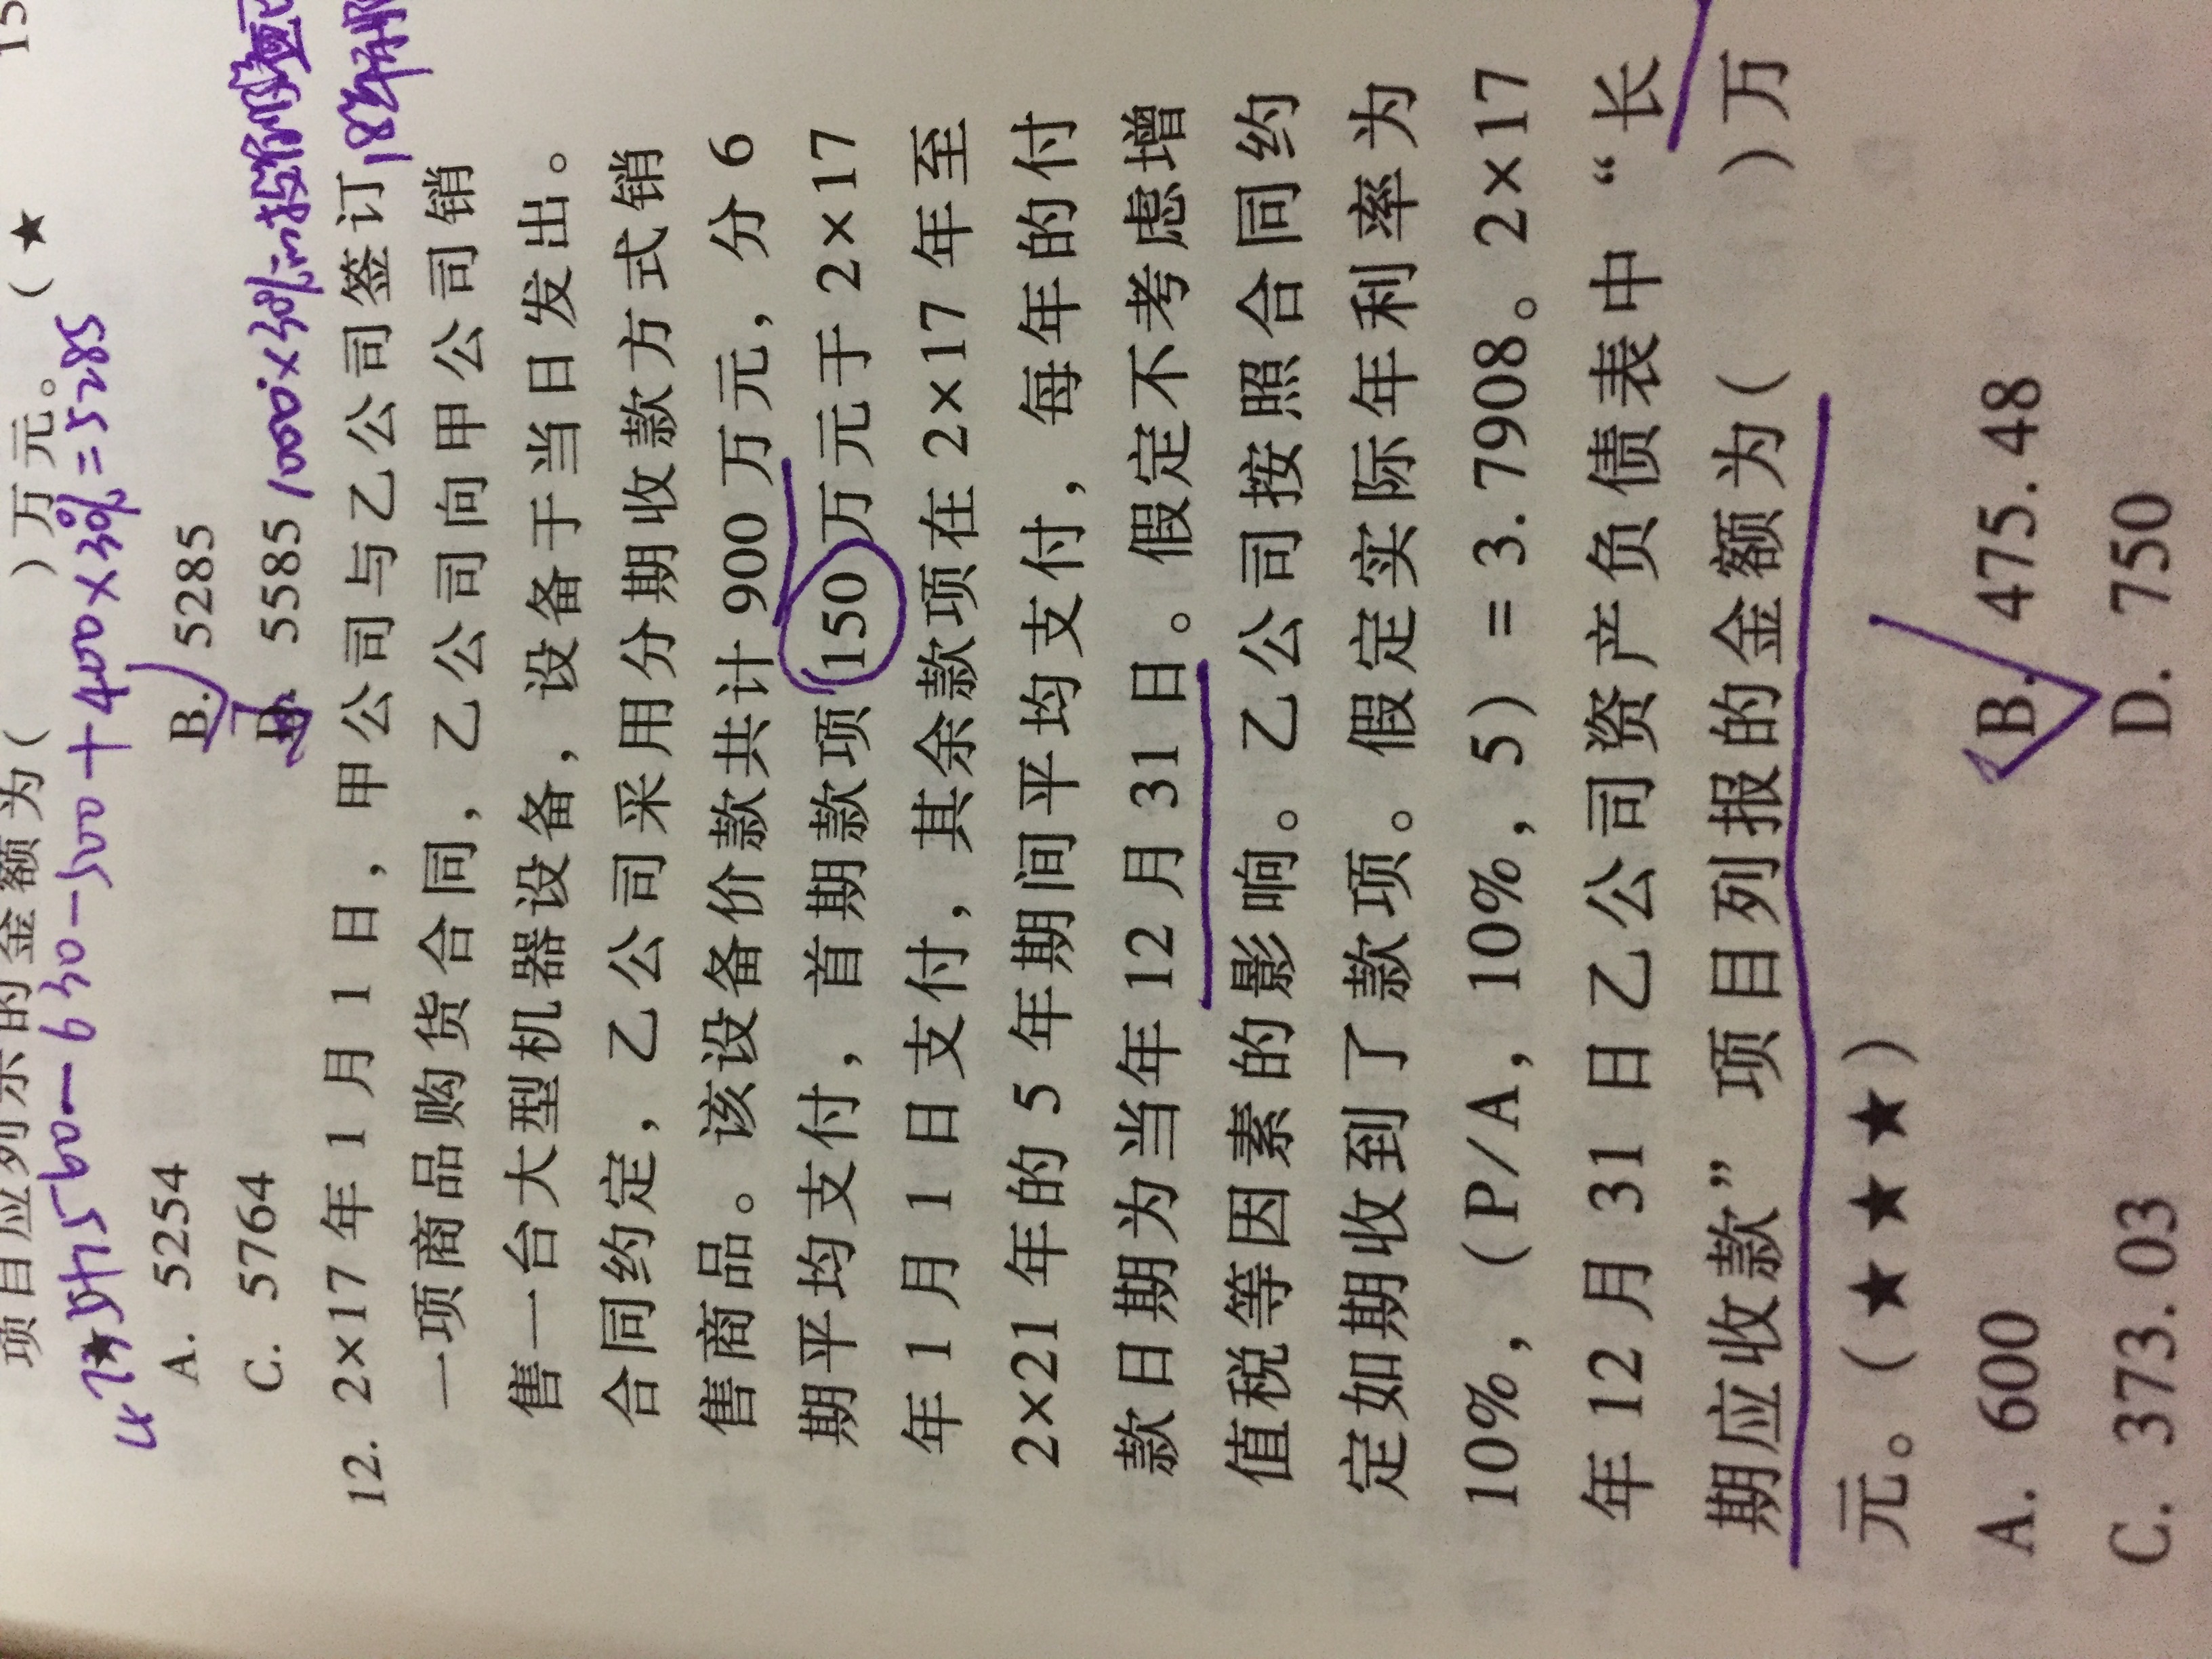 15
项目应列示的金额为(　　)万元。(★
★
5560-630-500+400×30%=5285
A. 5254　B. 5285
C. 5764　D. 5585　1000×30%
12. 2×17年1月1日，甲公司与乙公司签订
一项商品购货合同，乙公司向甲公司销
售一台大型机器设备，设备于当日发出。
合同约定，乙公司采用分期收款方式销
售商品。该设备价款共计900万元，分6
期平均支付，首期款项150万元于2×17
年1月1日支付，其余款项在2×17年至
2×21年的5年期间平均支付，每年的付
款日期为当年12月31日。假定不考虑增
值税等因素的影响。乙公司按照合同约
定如期收到了款项。假定实际年利率为
10%，(P/A，10%，5)=3.7908。2×17
年12月31日乙公司资产负债表中“长
期应收款”项目列报的金额为(　　)万
元。(★★★)
A. 600　B. 475.48
C. 373.03　D. 750